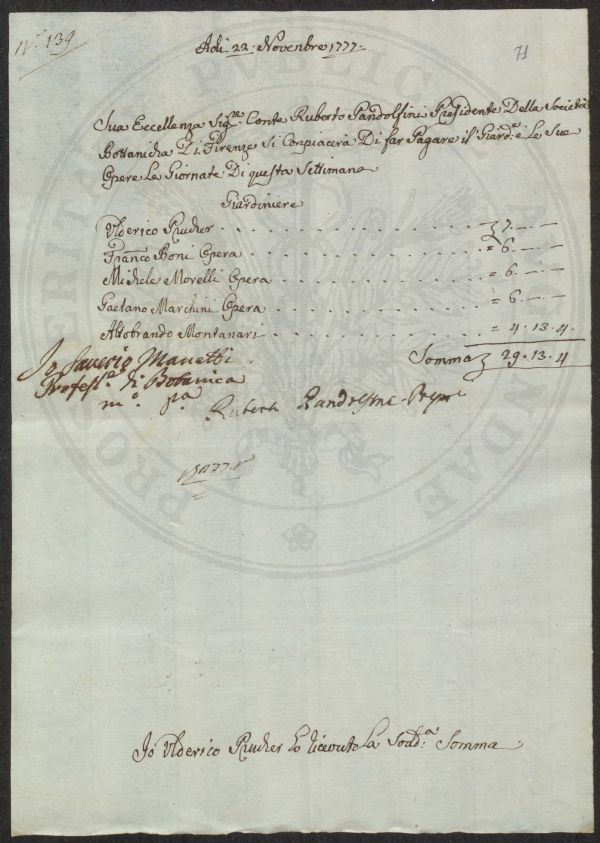 N.° 139
Adi 22. Novenbre 1777.
71
Sua Eccellenza Sig.re Conte Ruberto Pandolfini Presidente Della Società
Bottanicha Di Firenze Si Conpiacerà Di far Pagare il Giard.e e Le Sue
Opere Le Giornate Di questa Settimana
Giardiniere
Ulderico Prucher . . . . . . . . . . . . 7. — . —
Franco Boni Opera . . . . . . . . . . . = 6. — . —
Michele Morelli Opera . . . . . . . . . = 6. — . —
Gaetano Marchini Opera . . . . . . . . = 6. — . —
Altobrando Montanari . . . . . . . . . = 4. 13. 4.
Somma 29. 13. 4
Io Saverio Manetti
Profess.e di Botanica
m.o p.a
Ruberto Pandolfini
Io Ulderico Prucher ho ricevuto La Sodd.a Somma
PROSPERITATI PUBLICAE AUGENDAE